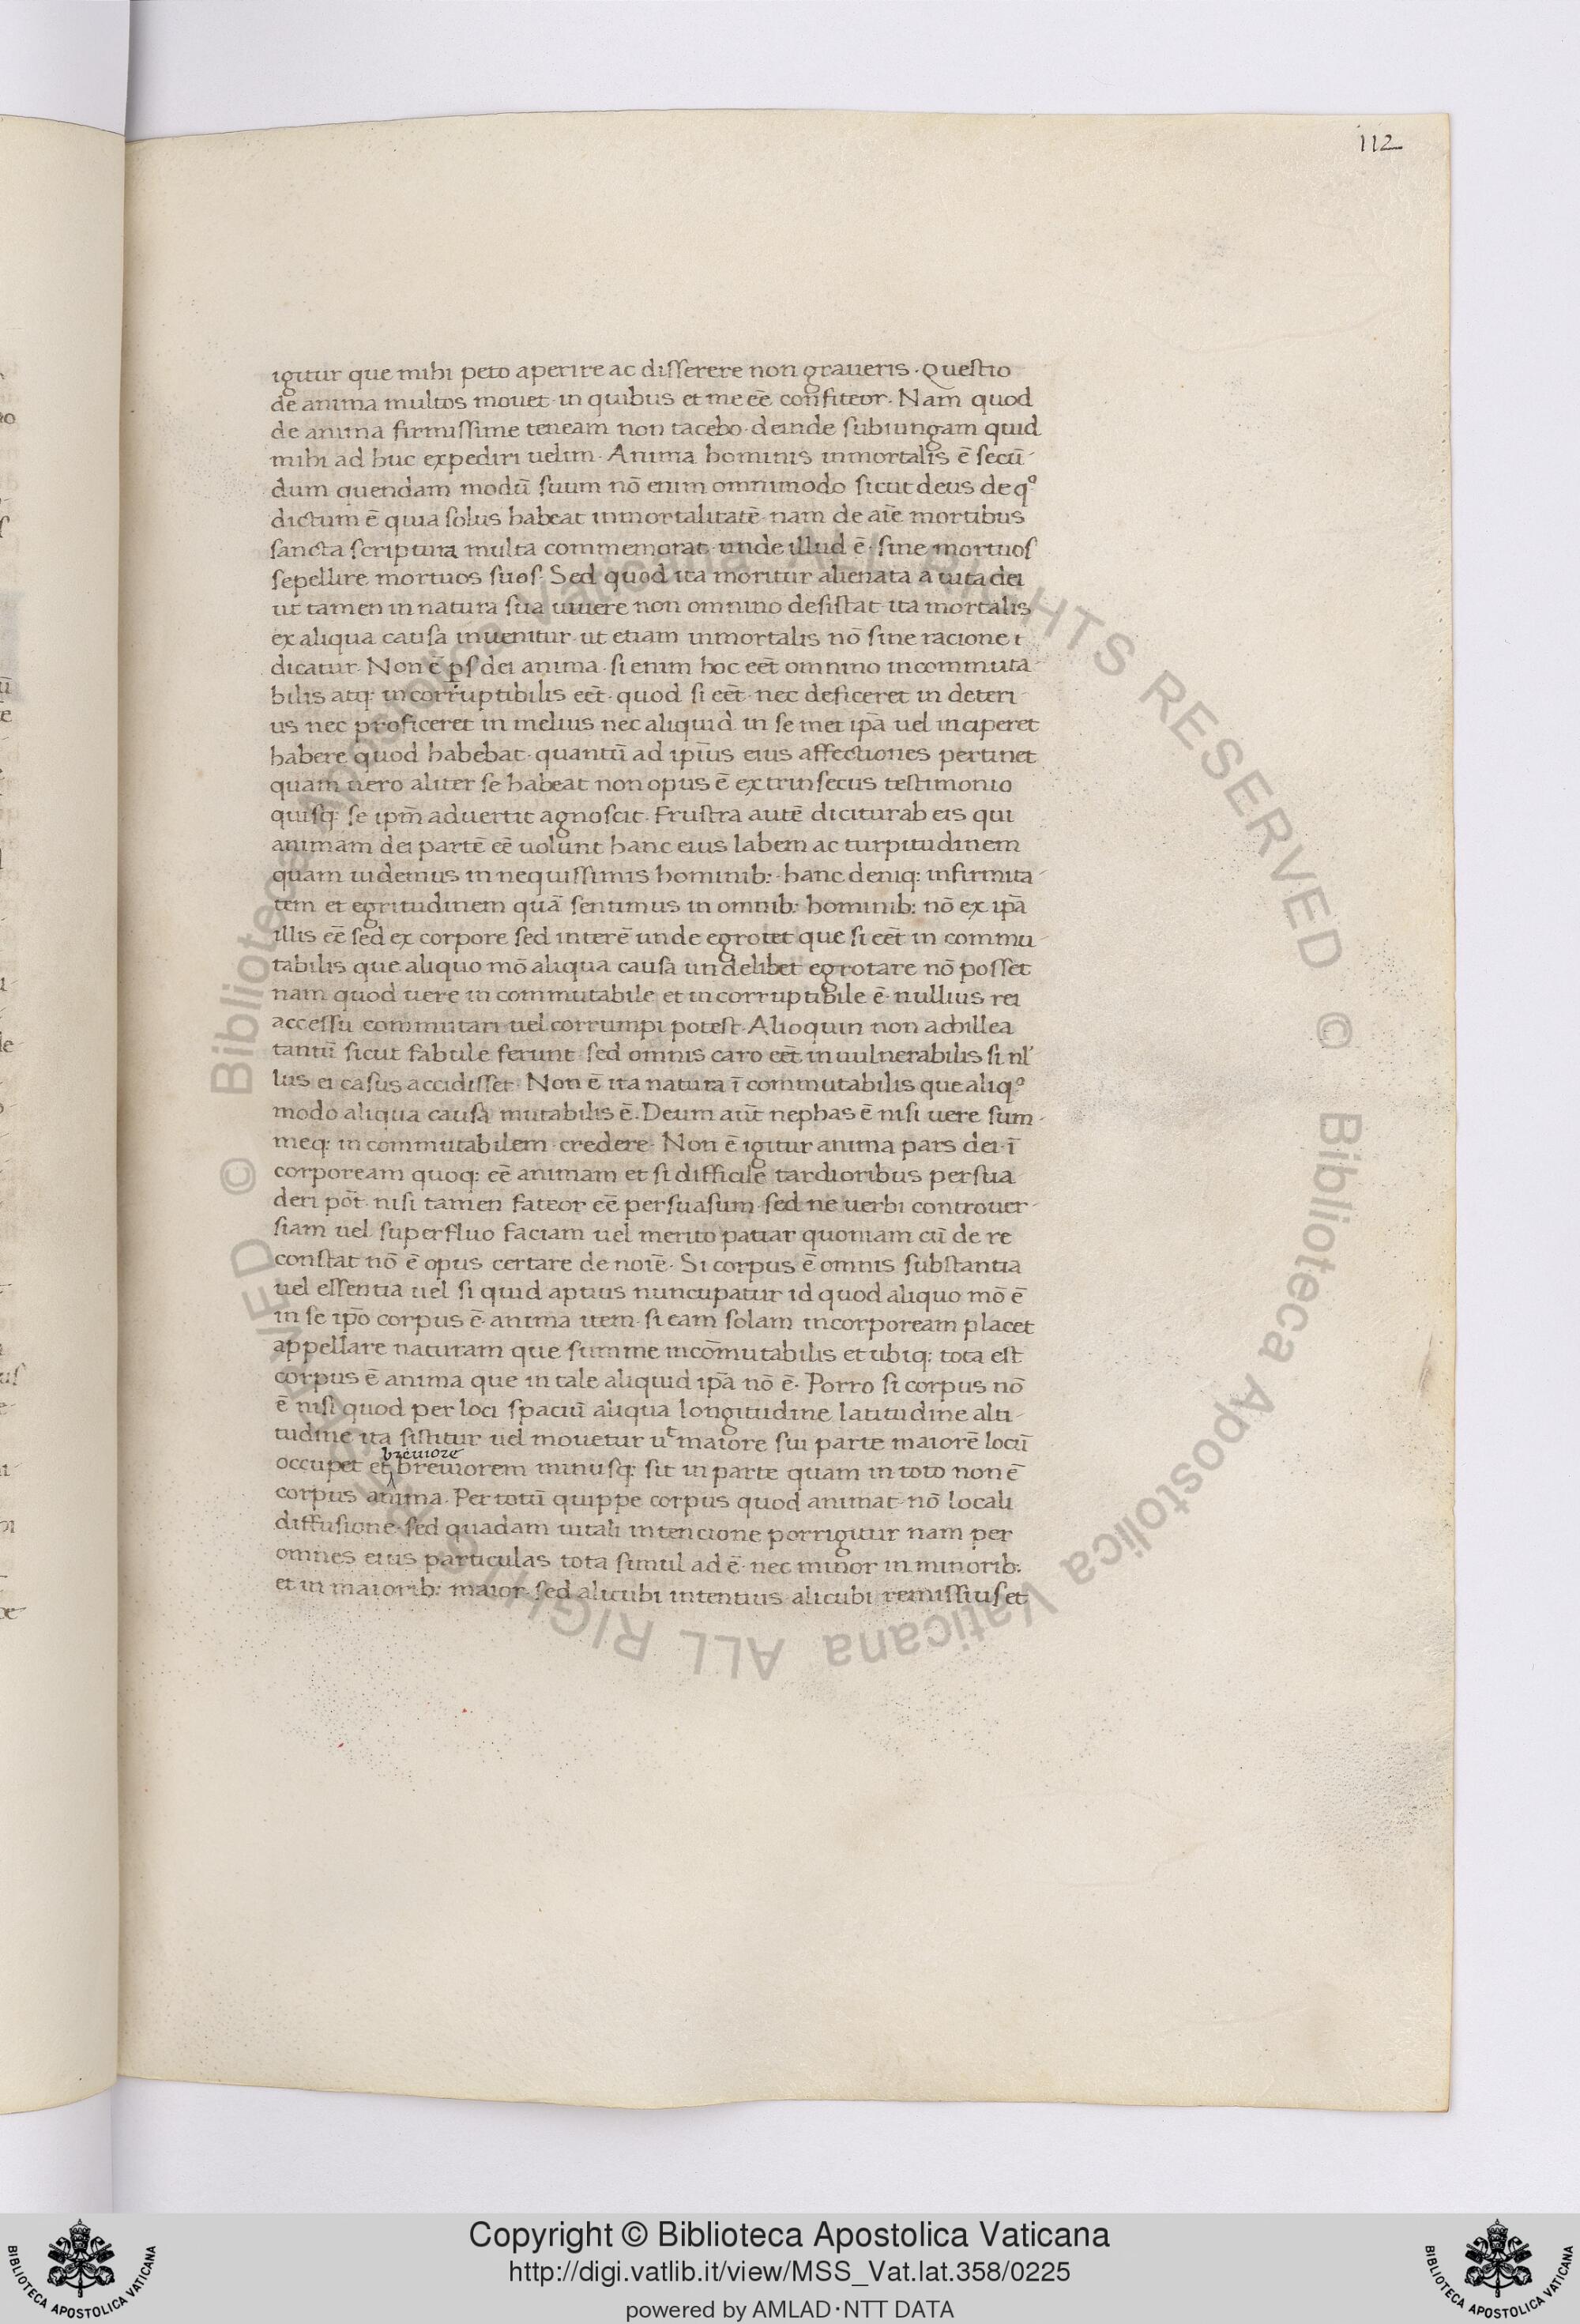 112
igitur que mihi peto aperire ac disserere non graueris · Questio
de anima multos mouet · in quibus et me eē confiteor · Nam quod
de anima firmissime teneam non tacebo · deinde subiungam quid
mihi ad huc expediri uelim · Anima hominis inmortalis ē secū-
dum quendam modū suum nō enim omnimodo sicut deus de qº
dictum ē quia solus habeat inmortalitatē · nam de aīe mortibus
sancta scriptura multa commemorat · unde illud ē · sine mortuos
sepellire mortuos suos · Sed quod ita moritur alienata a uita dei
ut tamen in natura sua uiuere non omnino desistat · ita mortalis
ex aliqua causa inuenitur · ut etiam inmortalis nō sine racione
dicatur · Non ē ps dei anima · si enim hoc eēt omnino incommuta-
bilis atq: incorruptibilis eēt · quod si eēt · nec deficeret in deteri-
us nec proficeret in melius nec aliquid in se met ip̄a uel inciperet
habere quod habebat · quantū ad ip̄ius eius affectiones pertinet
quam uero aliter se habeat non opus ē extrinsecus testimonio
quisq: se ip̄m aduertit agnoscit · Frustra autē dicitur ab eis qui
animam dei partē eē uolunt hanc eius labem ac turpitudinem
quam uidemus in nequissimis hominib: · hanc deniq: infirmita-
tem et egritudinem quā sentimus in omnib: hominib: nō ex ip̄a
illis eē sed ex corpore sed interē unde egrotet que si eēt in commu-
tabilis que aliquo mō aliqua causa undelibet egrotare nō posset
nam quod uere in commutabile et incorruptibile ē · nullius rei
accessu commutari uel corrumpi potest · Alioquin non achillea
tantū sicut fabule ferunt · sed omnis caro eēt inuulnerabilis si nl'
lus ei casus accidisset · Non ē ita natura ī commutabilis que aliqº
modo aliqua causa mutabilis ē · Deum aūt nephas ē nisi uere sum-
meq: in commutabilem · credere · Non ē igitur anima pars dei · ī
corpoream quoq: eē animam et si difficile tardioribus persua
deri pōt · nisi tamen fateor eē persuasum · sed ne uerbi controuer-
siam uel superfluo faciam uel merito patiar quoniam cū de re
constat nō ē opus certare de noīe · Si corpus ē omnis substantia
uel essentia uel si quid aptius nuncupatur id quod aliquo mō ē
in se ip̄o corpus ē · anima item · si eam solam incorpoream placet
appellare naturam que summe incōmutabilis et ubiq: tota est
corpus ē anima que in tale aliquid ip̄a nō ē · Porro si corpus nō
ē nisi quod per loci spaciū aliqua longitudine latitudine alti-
tudine ita sistitur uel mouetur ut maiore sui parte maiorē locū
breuiore
occupet et breuiorem minusq: sit in parte quam in toto non ē
corpus anima · Per totū quippe corpus quod animat nō locali
diffusione · sed quadam uitali intencione porrigitur nam per
omnes eius particulas tota simul ad ē · nec minor in minorib:
et in maiorib: maior · sed alicubi intentius alicubi remissius et
© Biblioteca Apostolica Vaticana ALL RIGHTS RESERVED © Biblioteca Apostolica Vaticana ALL RIGHTS RESERVED
Copyright © Biblioteca Apostolica Vaticana
http://digi.vatlib.it/view/MSS_Vat.lat.358/0225
powered by AMLAD·NTT DATA
BIBLIOTECA APOSTOLICA VATICANA
BIBLIOTECA APOSTOLICA VATICANA